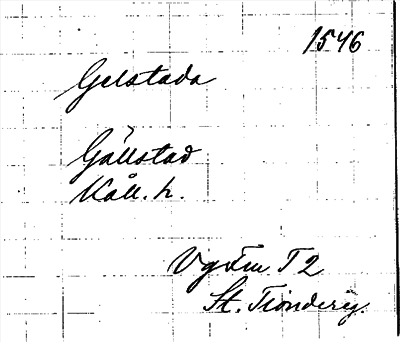 1546
Gelstada
Gällstad
Käll. h.
Vg Fru T 2
St. Tiondereg.